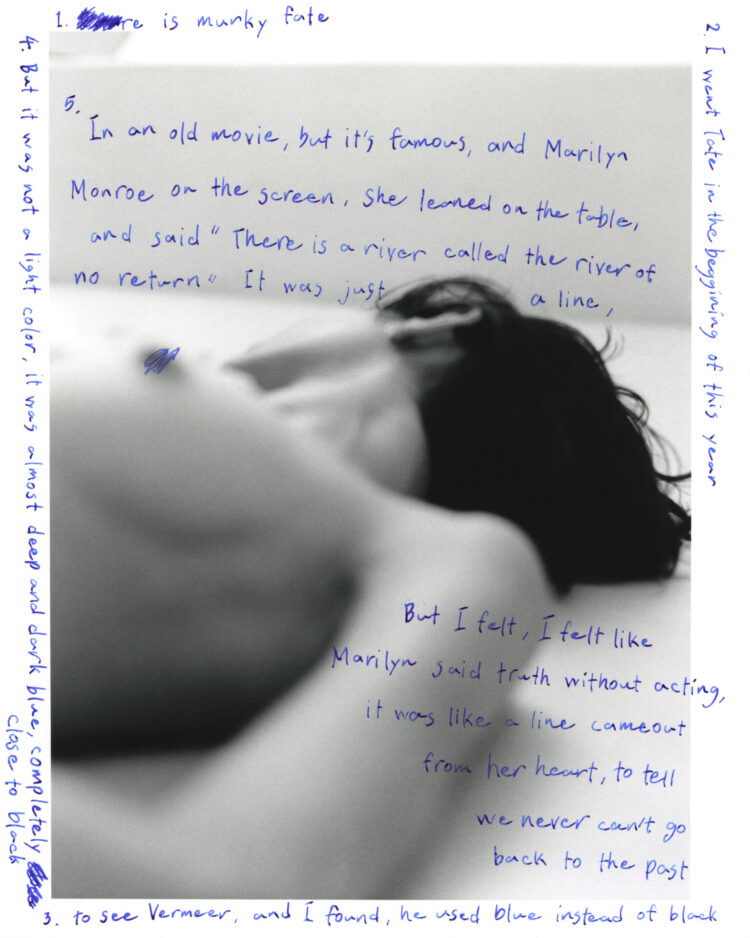 1. re is murky fate
2. I went Tate in the beggining of this year
3. to see Vermeer, and I found, he used blue instead of black
4. But it was not a light color, it was almost deep and dark blue, completely
close to black
5.
In an old movie, but it's famous, and Marilyn
Monroe on the screen, She leaned on the table,
and said "There is a river called the river of
no return" It was just a line,
But I felt, I felt like
Marilyn said truth without acting,
it was like a line cameout
from her heart, to tell
we never can't go
back to the past